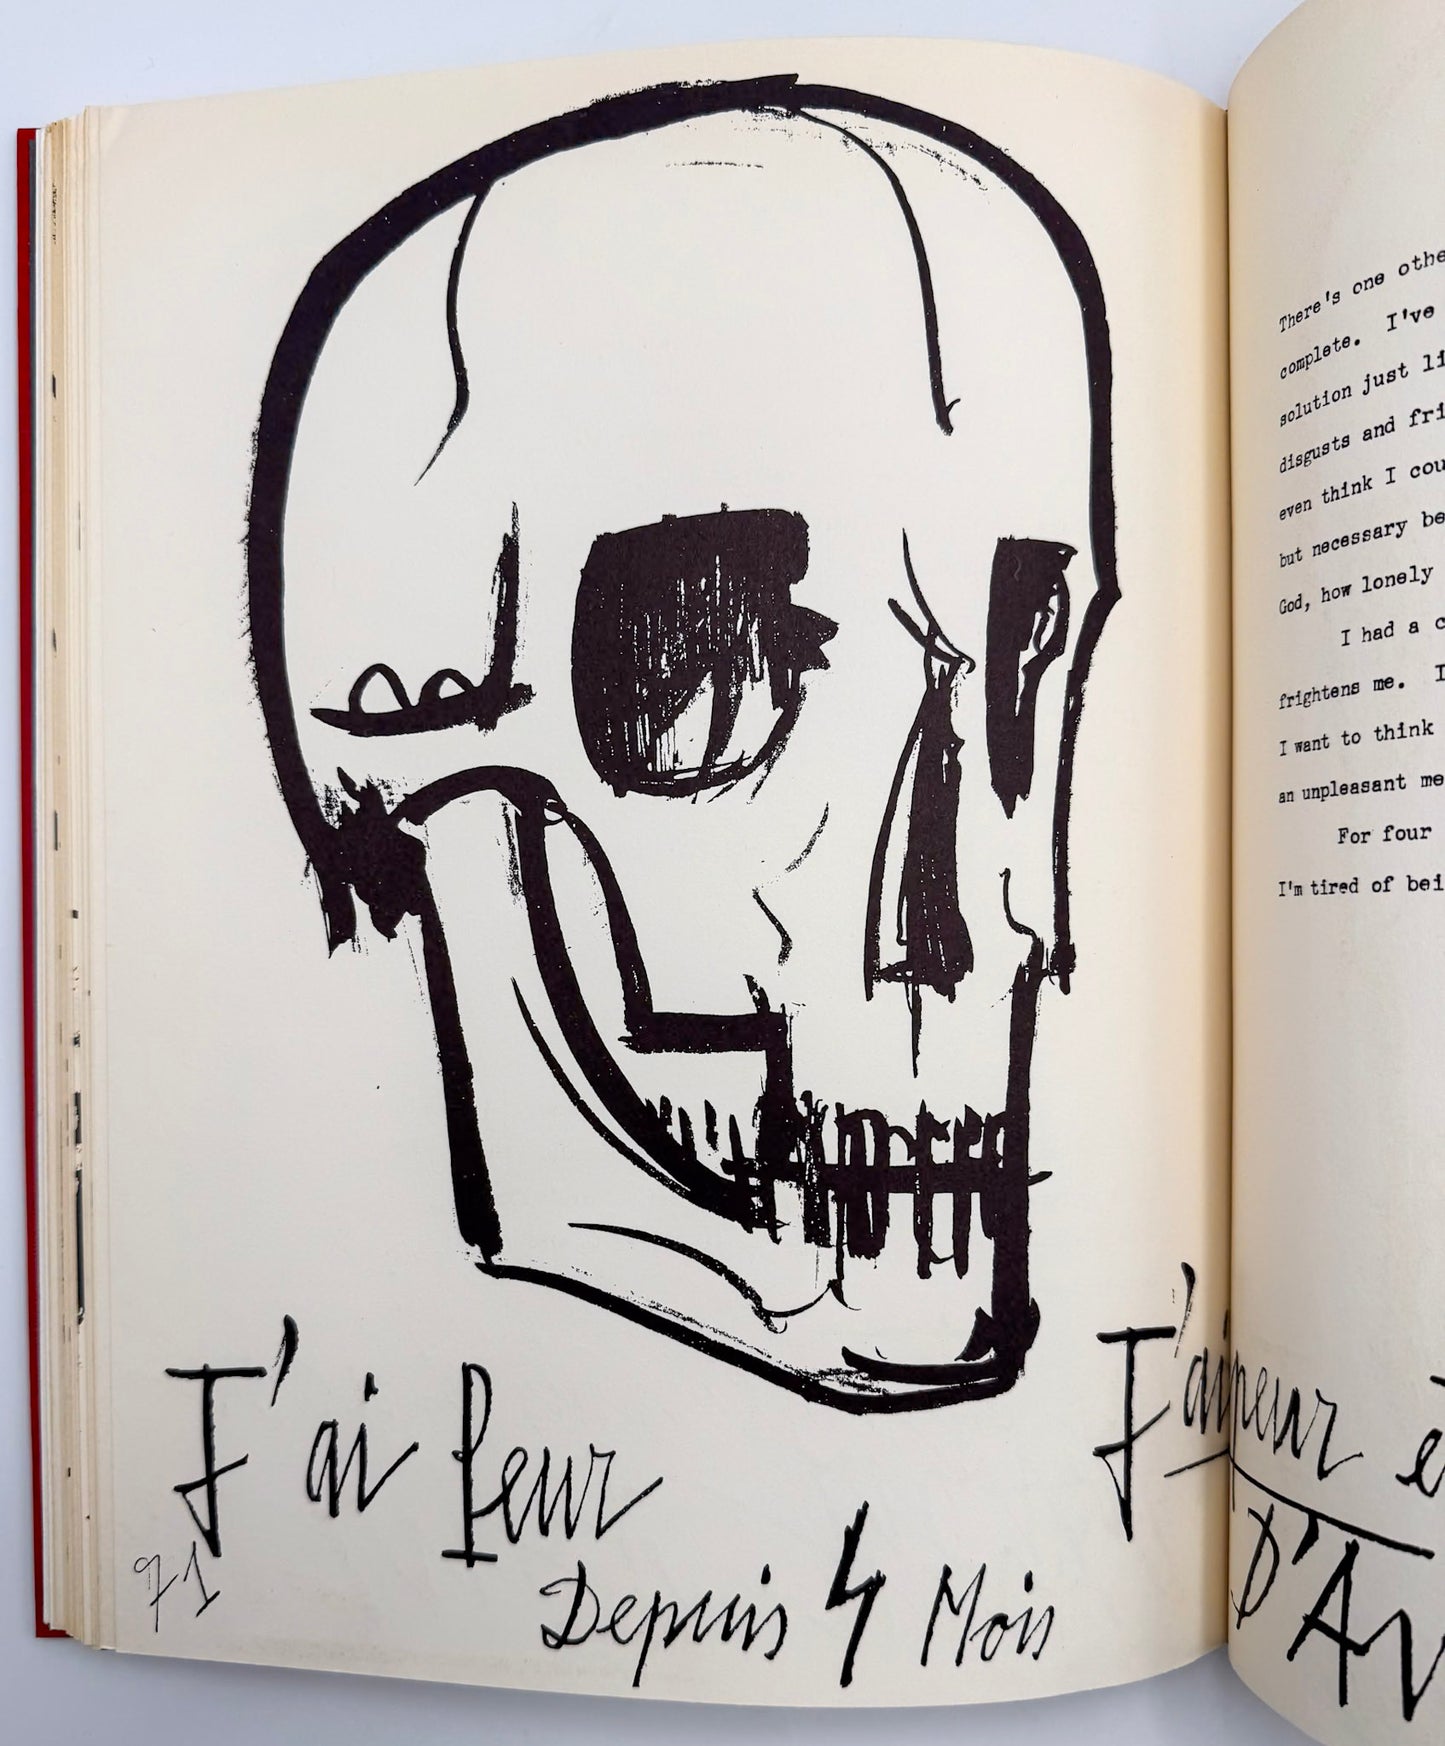 J'ai Peur
Depuis 4 Mois
71
There's one othe
complete. I've
solution just li
disgusts and fri
even think I cou
but necessary be
God, how lonely
I had a c
frightens me. I
I want to think
an unpleasant me
For four
I'm tired of bei
J'ai peur
D'A